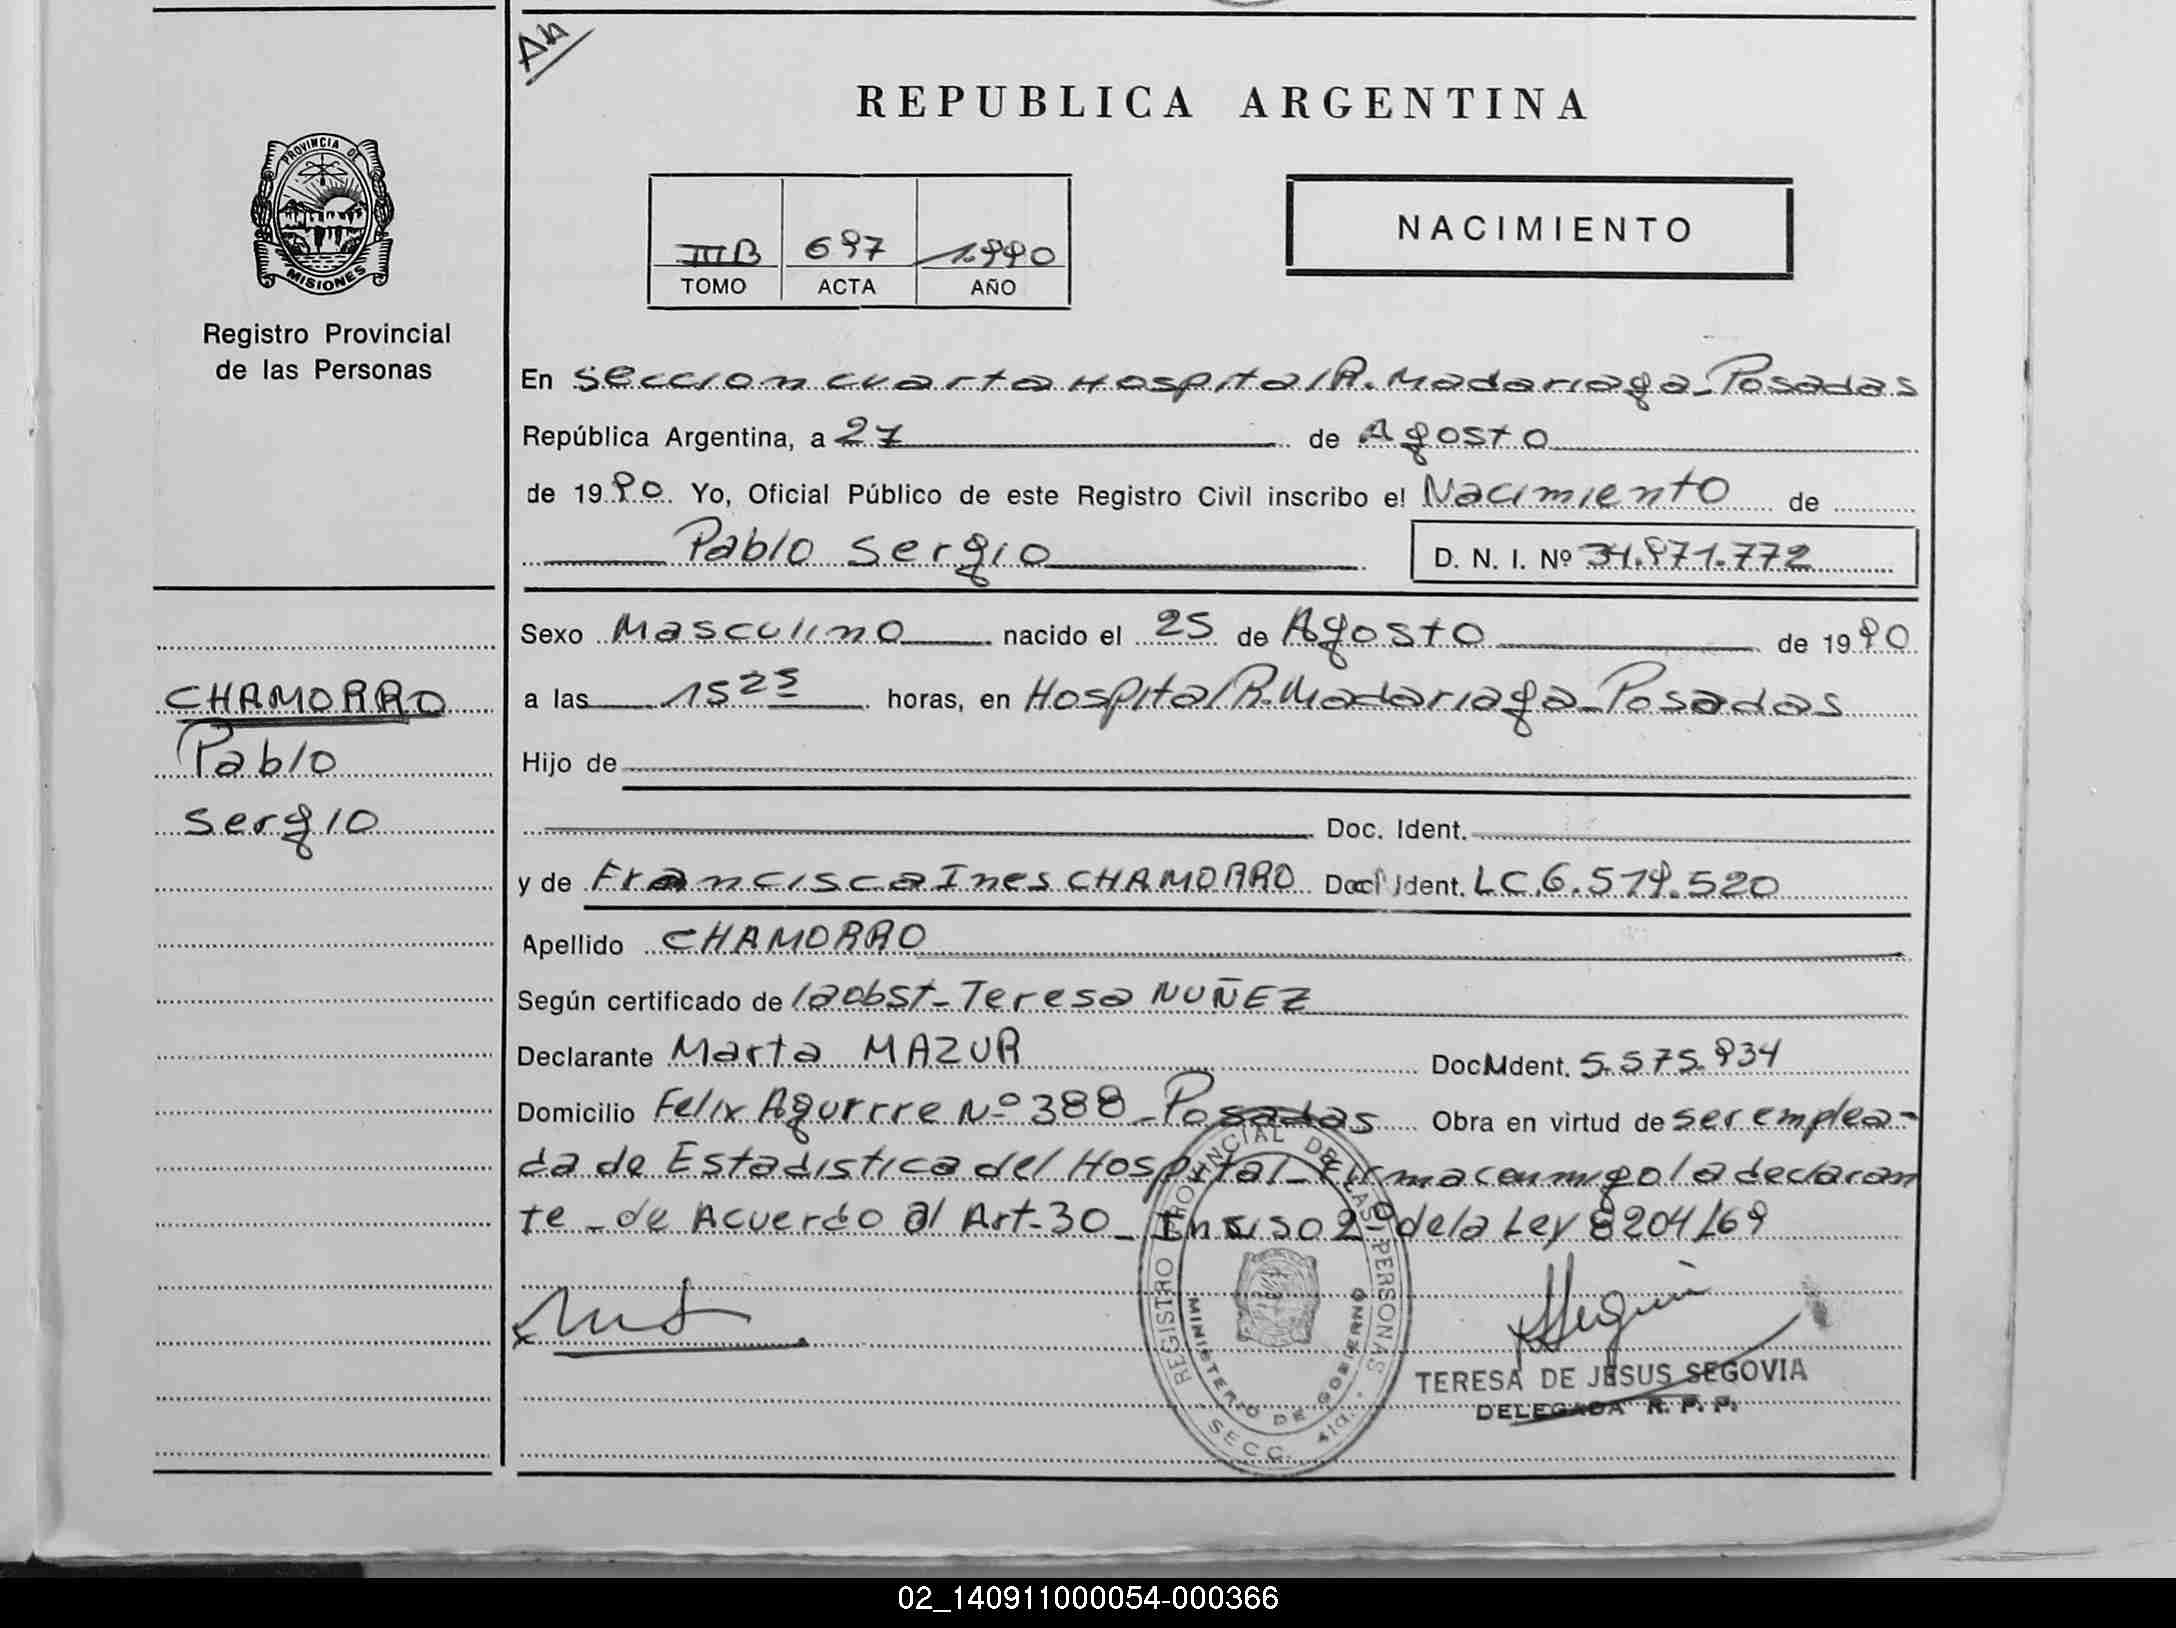 REPUBLICA ARGENTINA
PROVINCIA DE
MISIONES
Registro Provincial
de las Personas
III B 697 1.990
TOMO ACTA AÑO
NACIMIENTO
En Seccion cuarta Hospital R. Madariaga - Posadas
República Argentina, a 27 de Agosto
de 1990 Yo, Oficial Público de este Registro Civil inscribo el Nacimiento de
Pablo Sergio D. N. I. Nº 34.971.772
Sexo Masculino nacido el 25 de Agosto de 1990
CHAMORRO
Pablo
Sergio
a las 15 25 horas, en Hospital R. Madariaga - Posadas
Hijo de
Doc. Ident.
y de Francisca Ines CHAMORRO Doc. Ident. LC.6.519.520
Apellido CHAMORRO
Según certificado de la obst - Teresa NUÑEZ
Declarante Marta MAZUR Doc. Ident. 5.575.934
Domicilio Felix Agurrre Nº 388 - Posadas Obra en virtud de ser emplea-
da de Estadistica del Hospital - Firma conmigo la declaran
te - de Acuerdo al Art - 30 - Inciso 2º de la Ley 8204/69
REGISTRO PROVINCIAL DE LAS PERSONAS
MINISTERIO DE GOBIERNO
SECC. 4ta.
TERESA DE JESUS SEGOVIA
DELEGADA R. P. P.
02_140911000054-000366